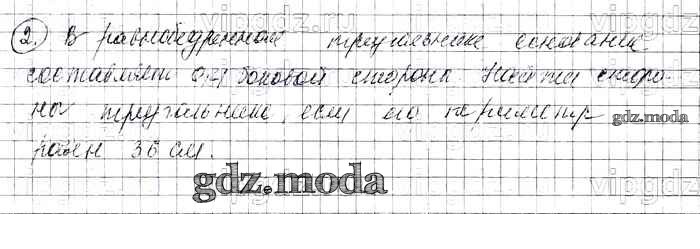 vipgdz.ru
2. В равнобедренном треугольнике основание
составляет 0,4 боковой стороны. Найти сторо-
ны треугольника, если его периметр
gdz.moda
равен 36 см.
gdz.moda
vipgdz